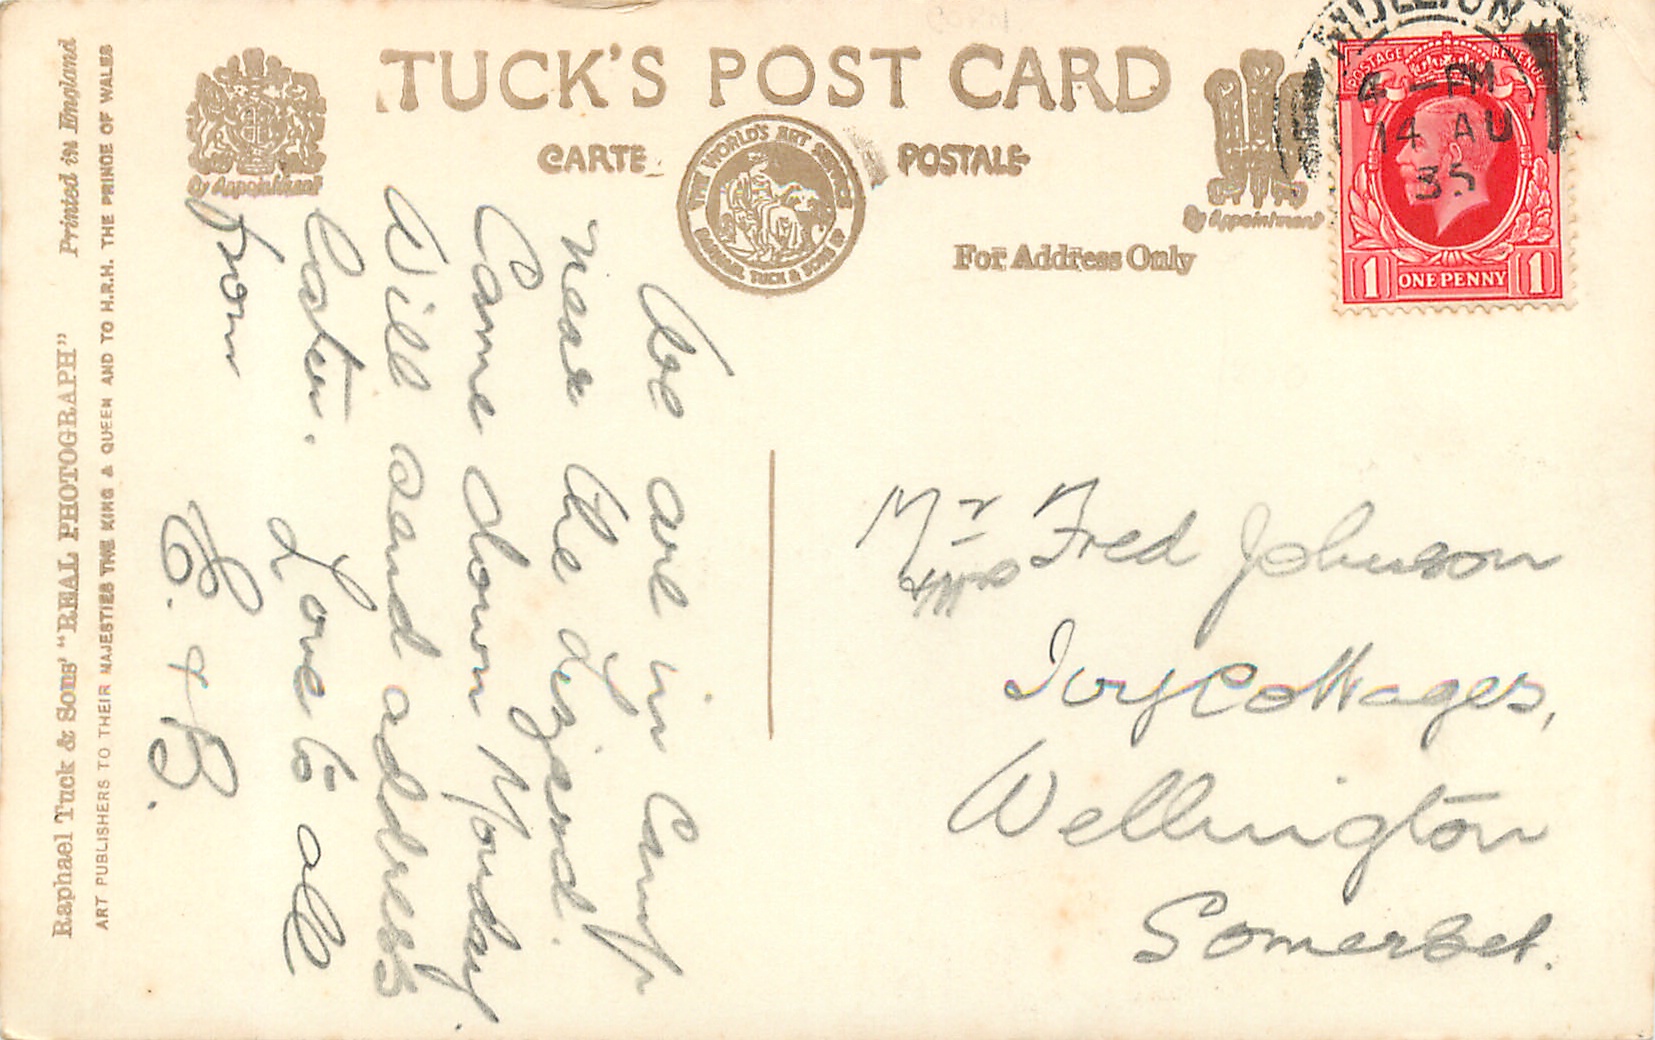 TUCK'S POST CARD
CARTE POSTALE
By Appointment
By Appointment
THE WORLD'S ART SERVICE
RAPHAEL TUCK & SONS LD
For Address Only
POSTAGE REVENUE
1 ONE PENNY 1
4 - PM
14 AU
35
Raphael Tuck & Sons' "REAL PHOTOGRAPH" Printed in England
ART PUBLISHERS TO THEIR MAJESTIES THE KING & QUEEN AND TO H.R.H. THE PRINCE OF WALES
We are in Camp
near the Lizard.
Came down Monday
Will send address
later. Love to all
from
E. + B.
Mr Fred Johnson
+ Mrs
Ivy Cottages,
Wellington
Somerset.